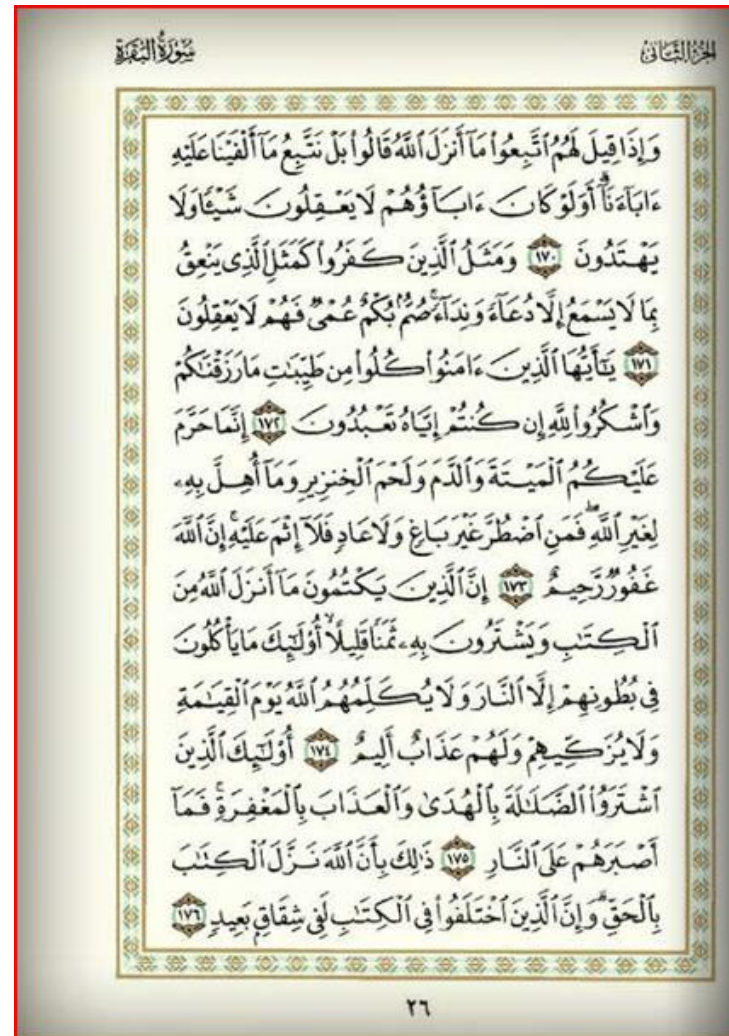 الجزء الثاني
سورة البقرة
وَإِذَا قِيلَ لَهُمُ ٱتَّبِعُوا۟ مَآ أَنزَلَ ٱللَّهُ قَالُوا۟ بَلْ نَتَّبِعُ مَآ أَلْفَيْنَا عَلَيْهِ
ءَابَآءَنَآ ۗ أَوَلَوْ كَانَ ءَابَآؤُهُمْ لَا يَعْقِلُونَ شَيْـًٔا وَلَا
يَهْتَدُونَ ١٧٠ وَمَثَلُ ٱلَّذِينَ كَفَرُوا۟ كَمَثَلِ ٱلَّذِى يَنْعِقُ
بِمَا لَا يَسْمَعُ إِلَّا دُعَآءً وَنِدَآءً ۚ صُمٌّۢ بُكْمٌ عُمْىٌ فَهُمْ لَا يَعْقِلُونَ
١٧١ يَـٰٓأَيُّهَا ٱلَّذِينَ ءَامَنُوا۟ كُلُوا۟ مِن طَيِّبَـٰتِ مَا رَزَقْنَـٰكُمْ
وَٱشْكُرُوا۟ لِلَّهِ إِن كُنتُمْ إِيَّاهُ تَعْبُدُونَ ١٧٢ إِنَّمَا حَرَّمَ
عَلَيْكُمُ ٱلْمَيْتَةَ وَٱلدَّمَ وَلَحْمَ ٱلْخِنزِيرِ وَمَآ أُهِلَّ بِهِۦ
لِغَيْرِ ٱللَّهِ ۖ فَمَنِ ٱضْطُرَّ غَيْرَ بَاغٍ وَلَا عَادٍ فَلَآ إِثْمَ عَلَيْهِ ۚ إِنَّ ٱللَّهَ
غَفُورٌ رَّحِيمٌ ١٧٣ إِنَّ ٱلَّذِينَ يَكْتُمُونَ مَآ أَنزَلَ ٱللَّهُ مِنَ
ٱلْكِتَـٰبِ وَيَشْتَرُونَ بِهِۦ ثَمَنًا قَلِيلًا ۙ أُو۟لَـٰٓئِكَ مَا يَأْكُلُونَ
فِى بُطُونِهِمْ إِلَّا ٱلنَّارَ وَلَا يُكَلِّمُهُمُ ٱللَّهُ يَوْمَ ٱلْقِيَـٰمَةِ
وَلَا يُزَكِّيهِمْ وَلَهُمْ عَذَابٌ أَلِيمٌ ١٧٤ أُو۟لَـٰٓئِكَ ٱلَّذِينَ
ٱشْتَرَوُا۟ ٱلضَّلَـٰلَةَ بِٱلْهُدَىٰ وَٱلْعَذَابَ بِٱلْمَغْفِرَةِ ۚ فَمَآ
أَصْبَرَهُمْ عَلَى ٱلنَّارِ ١٧٥ ذَٰلِكَ بِأَنَّ ٱللَّهَ نَزَّلَ ٱلْكِتَـٰبَ
بِٱلْحَقِّ ۗ وَإِنَّ ٱلَّذِينَ ٱخْتَلَفُوا۟ فِى ٱلْكِتَـٰبِ لَفِى شِقَاقٍۭ بَعِيدٍ ١٧٦
٢٦